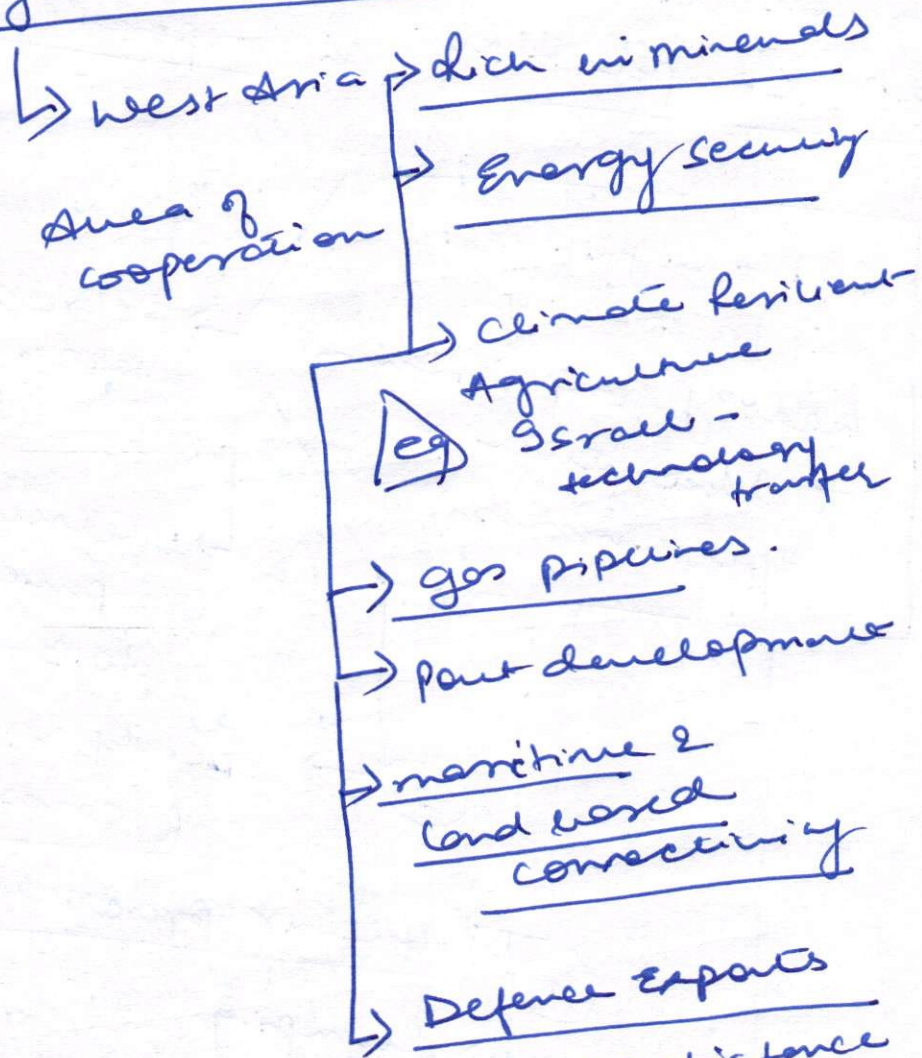 West Asia
Rich in minerals
Energy security
Area of
cooperation
Climate Resilient
Agriculture
eg Israel -
technology
transfer
gas pipelines.
Port development
maritime &
land based
connectivity
Defence Exports